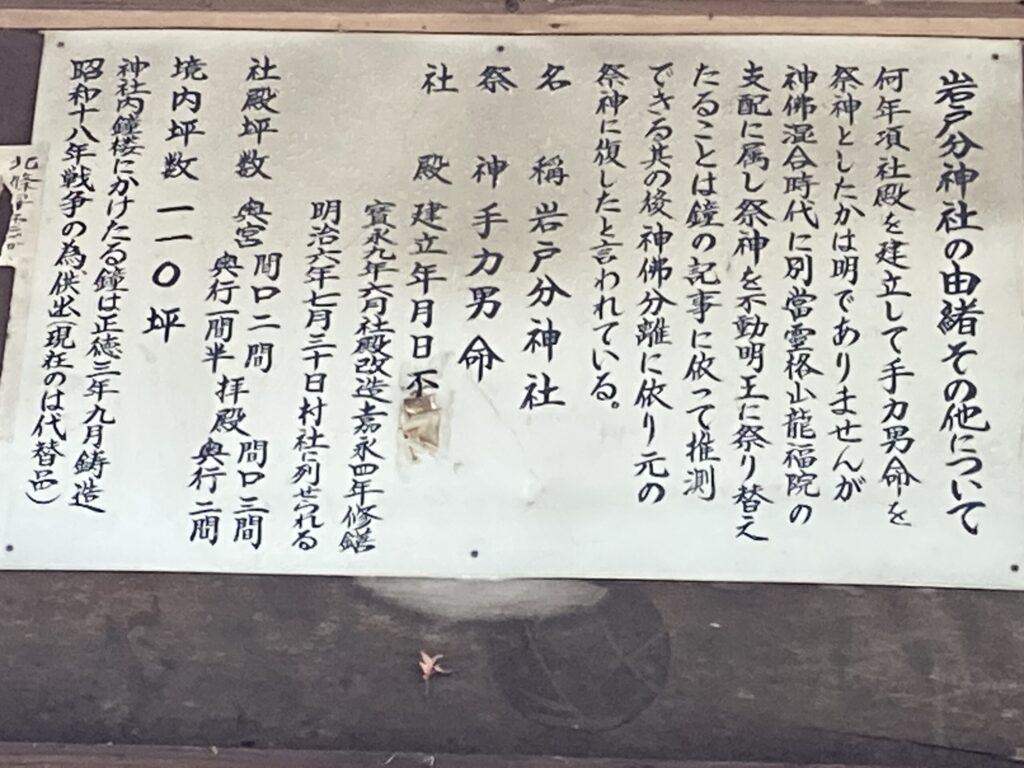 岩戸分神社の由緒その他について
何年項社殿を建立して手力男命を
祭神としたかは明でありませんが
神佛混合時代に別當霊格山龍福院の
支配に属し祭神を不動明王に祭り替え
たることは鐘の記事に依って推測
できる其の後神佛分離に依り元の
祭神に復したと言われている。
名称 岩戸分神社
祭神 手力男命
社殿 建立年月日不
寳永九年六月社殿改造嘉永四年修繕
明治六年七月三十日村社に列せられる
社殿坪数 奥宮 間口二間 奥行一間半 拝殿 間口三間 奥行二間
境内坪数 一一〇坪
神社内鐘楼にかけたる鐘は正徳三年九月鋳造
昭和十八年戦争の為、供出(現在のは代替品)